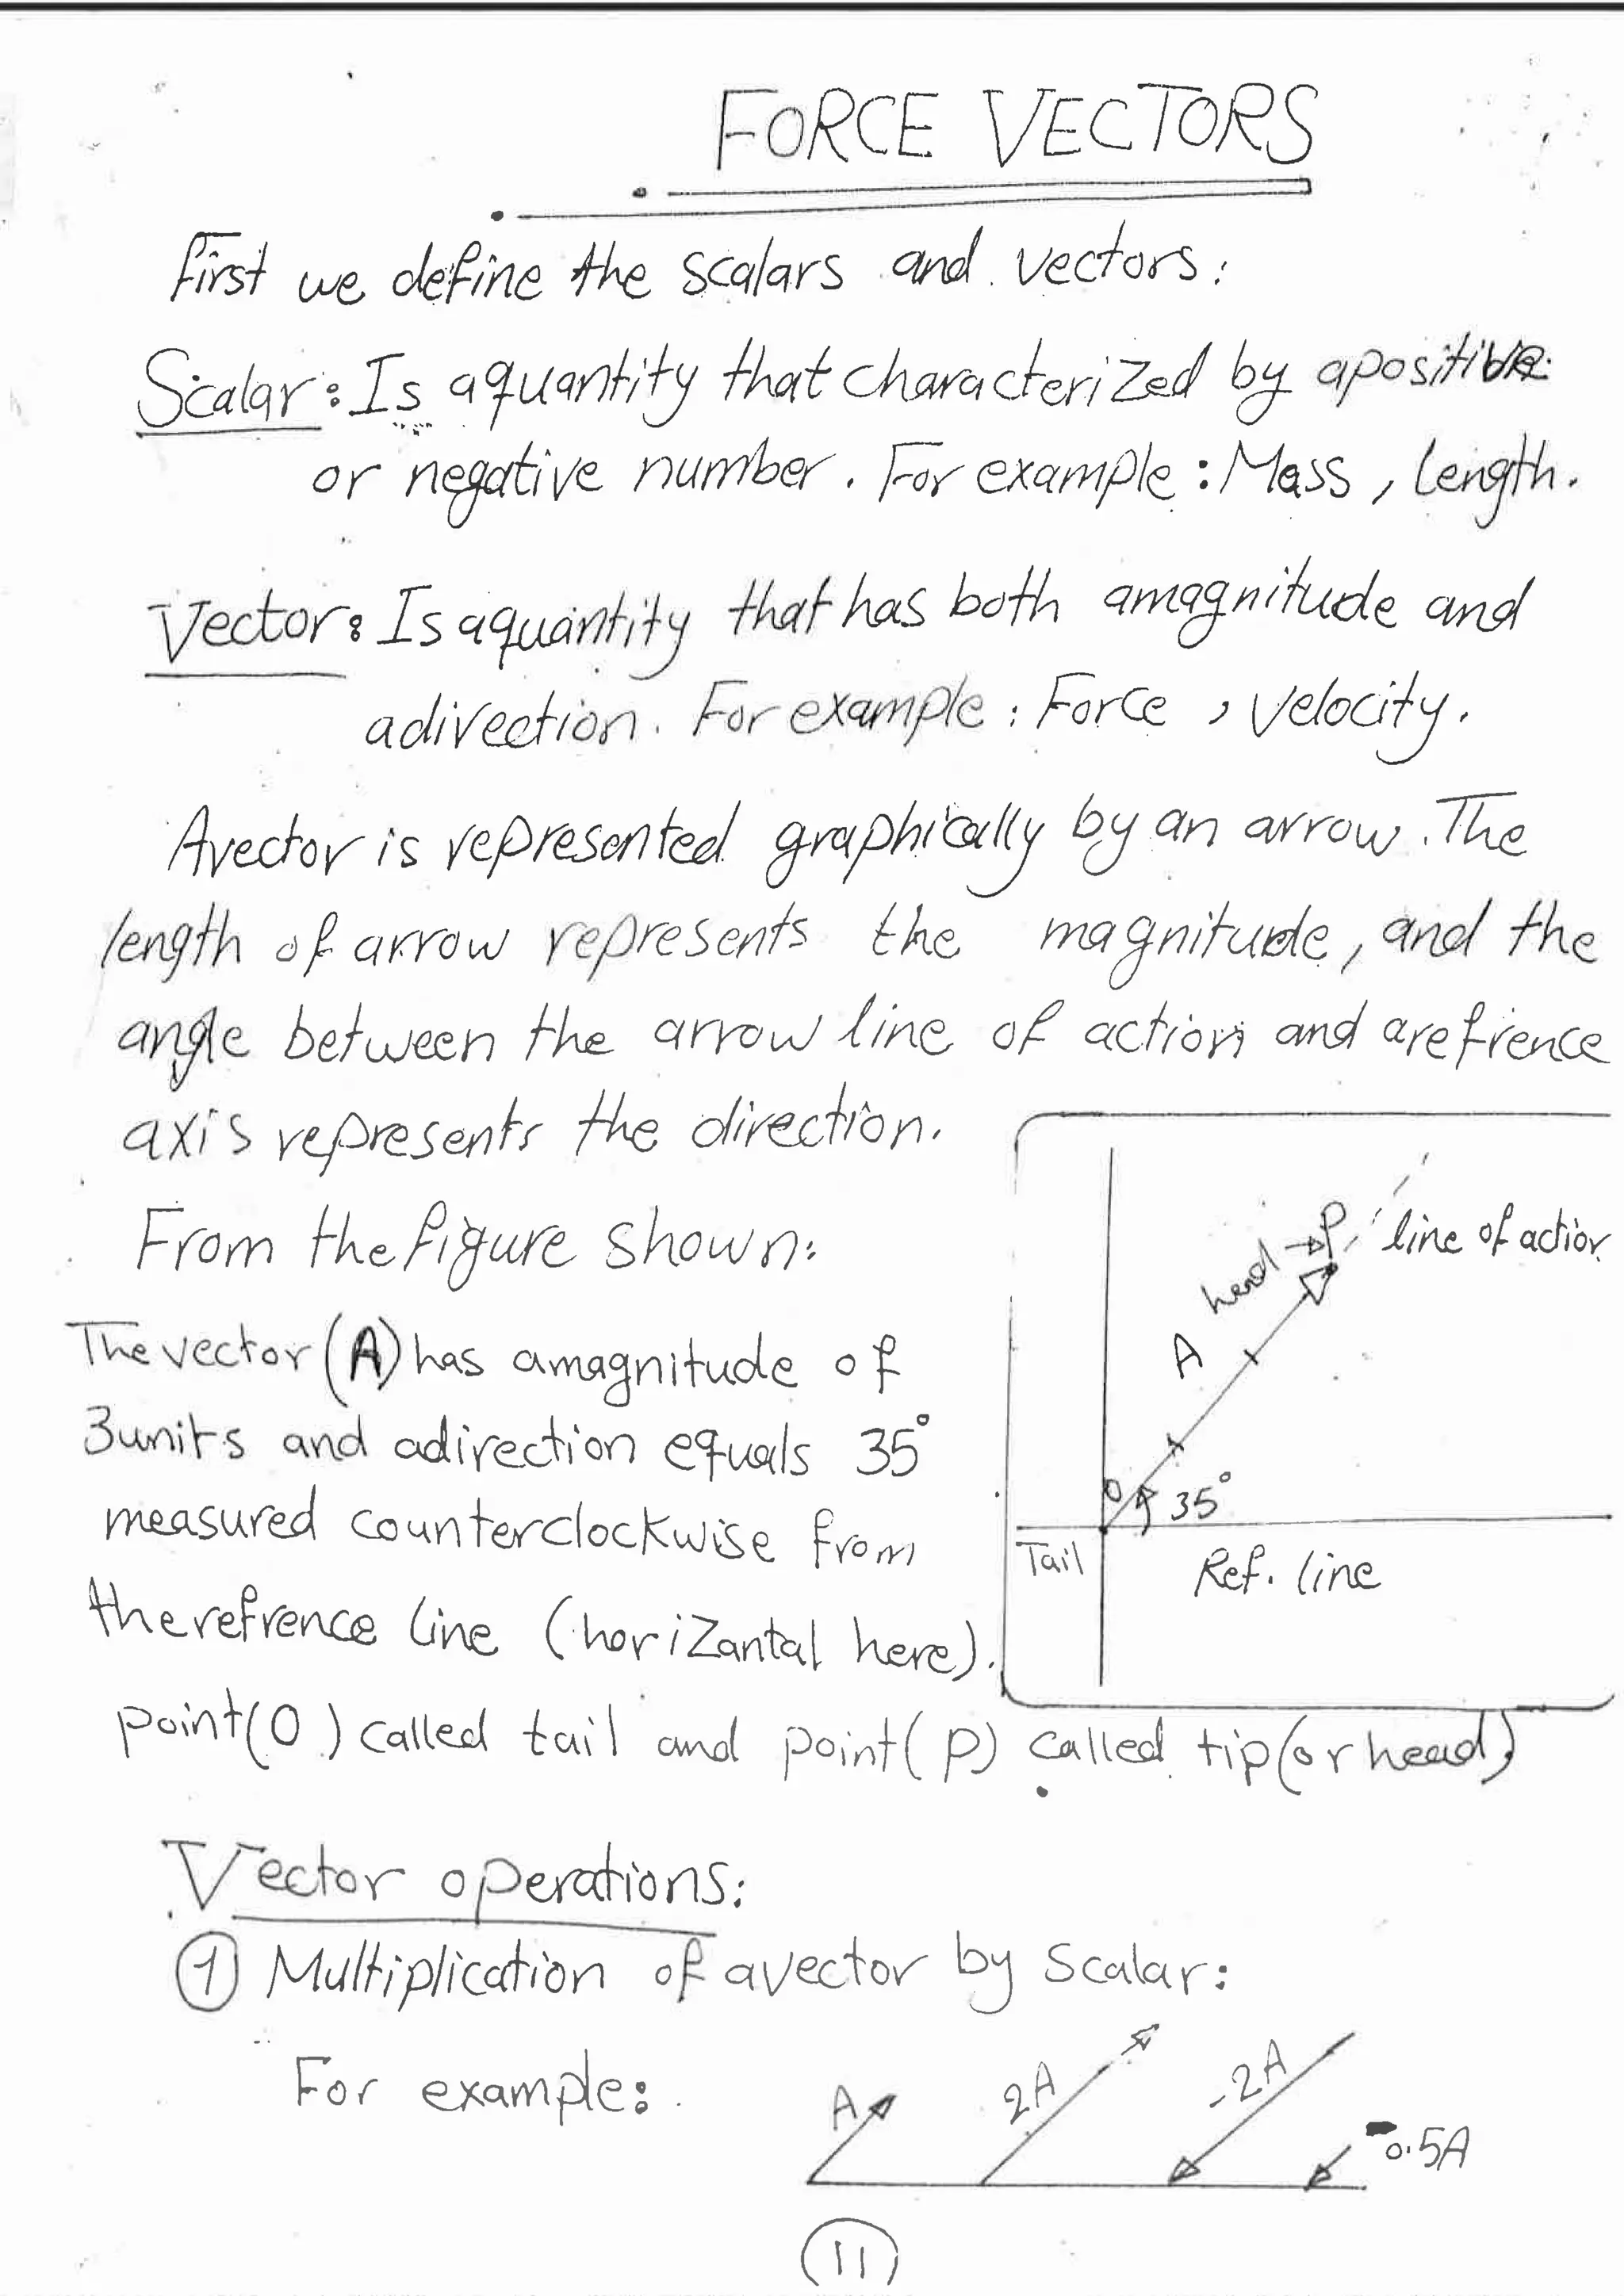 FORCE VECTORS
first we define the scalars and vectors:
Scalar: Is aquantity that characterized by apositive
or negative number. For example: Mass, length.
Vector: Is aquantity that has both amagnitude and
adirection. For example: Force, velocity.
Avector is represented graphically by an arrow. The
length of arrow represents the magnitude, and the
angle between the arrow line of action and arefrence
axis represents the direction.
From the figure shown:
The vector (A) has amagnitude of
3units and adirection equals 35°
measured counterclockwise from
therefrence line (horizantal here).
point(O) called tail and point(P) called tip(or head)
head → P
line of action
A
O
35°
Tail
Ref. line
Vector operations:
① Multiplication of avector by scalar:
For example:
A
2A
-2A
-0.5A
11